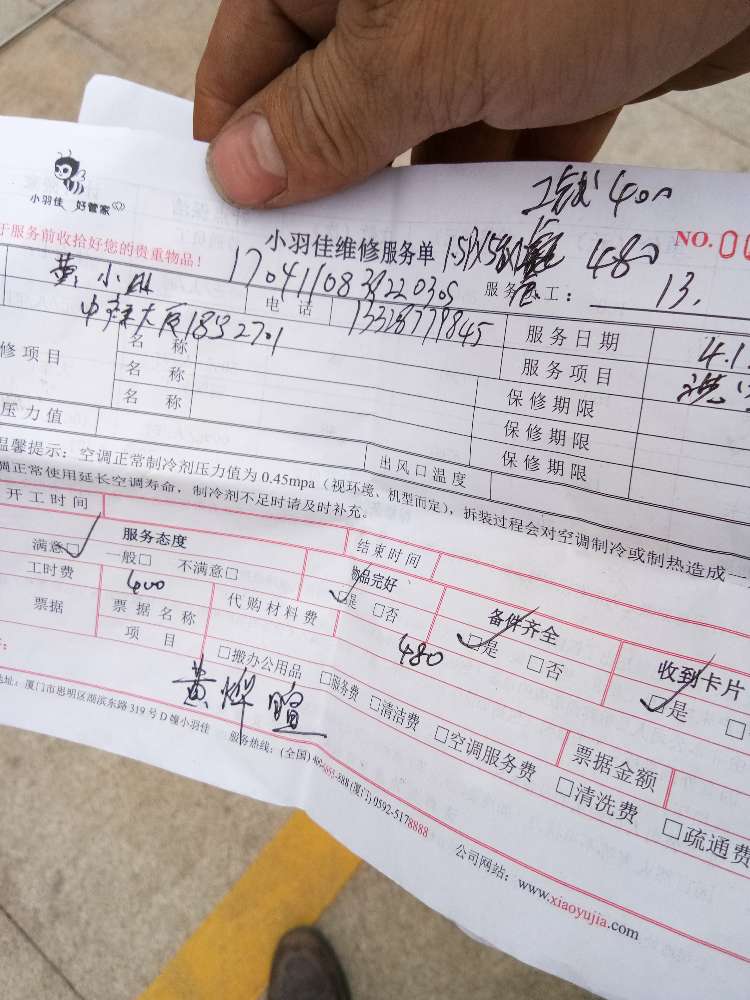 小羽佳 好管家
工时费 400
小羽佳维修服务单
480
NO.00
于服务前收拾好您的贵重物品！
黄小
17041108372203
服务员工： 13.
电话 13328779845
服务日期 4.1
大厦18
名称
服务项目 洗
修项目
名称
保修期限
名称
保修期限
压力值
出风口温度
保修期限
温馨提示：空调正常制冷剂压力值为0.45mpa（视环境、机型而定），拆装过程会对空调制冷或制热造成一
调正常使用延长空调寿命，制冷剂不足时请及时补充。
开工时间
结束时间
服务态度
物品完好
备件齐全
收到卡片
满意□
一般□
不满意□
□是 □否
□是 □否
□是 □
工时费 400
代购材料费 480
票据
票据名称
项目
□搬办公用品 □服务费 □清洁费 □空调服务费 □清洗费 □疏通费
票据金额
黄烨暄
地址：厦门市思明区湖滨东路319号D幢小羽佳
服务热线：(全国)
888 (厦门) 0592-5178888
公司网站：www.xiaoyujia.com